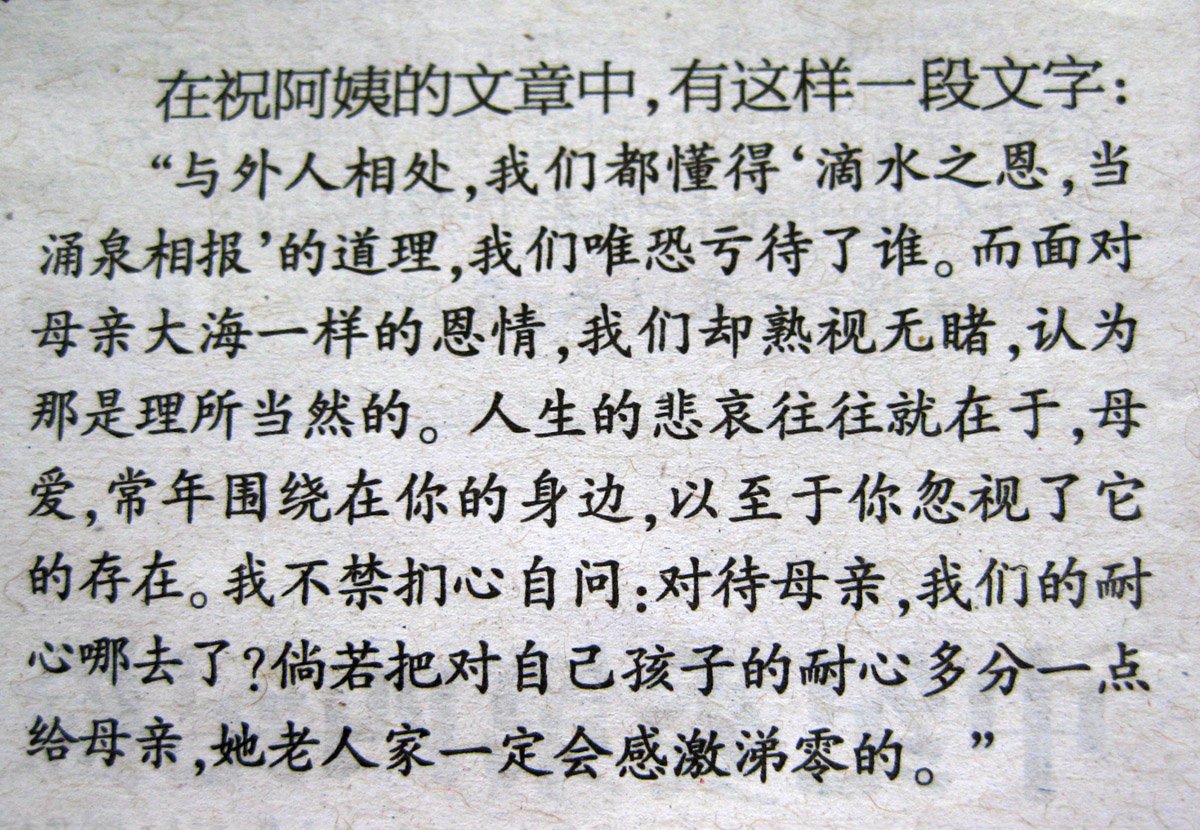 在祝阿姨的文章中，有这样一段文字：
“与外人相处，我们都懂得‘滴水之恩，当
涌泉相报’的道理，我们唯恐亏待了谁。而面对
母亲大海一样的恩情，我们却熟视无睹，认为
那是理所当然的。人生的悲哀往往就在于，母
爱，常年围绕在你的身边，以至于你忽视了它
的存在。我不禁扪心自问：对待母亲，我们的耐
心哪去了？倘若把对自己孩子的耐心多分一点
给母亲，她老人家一定会感激涕零的。”